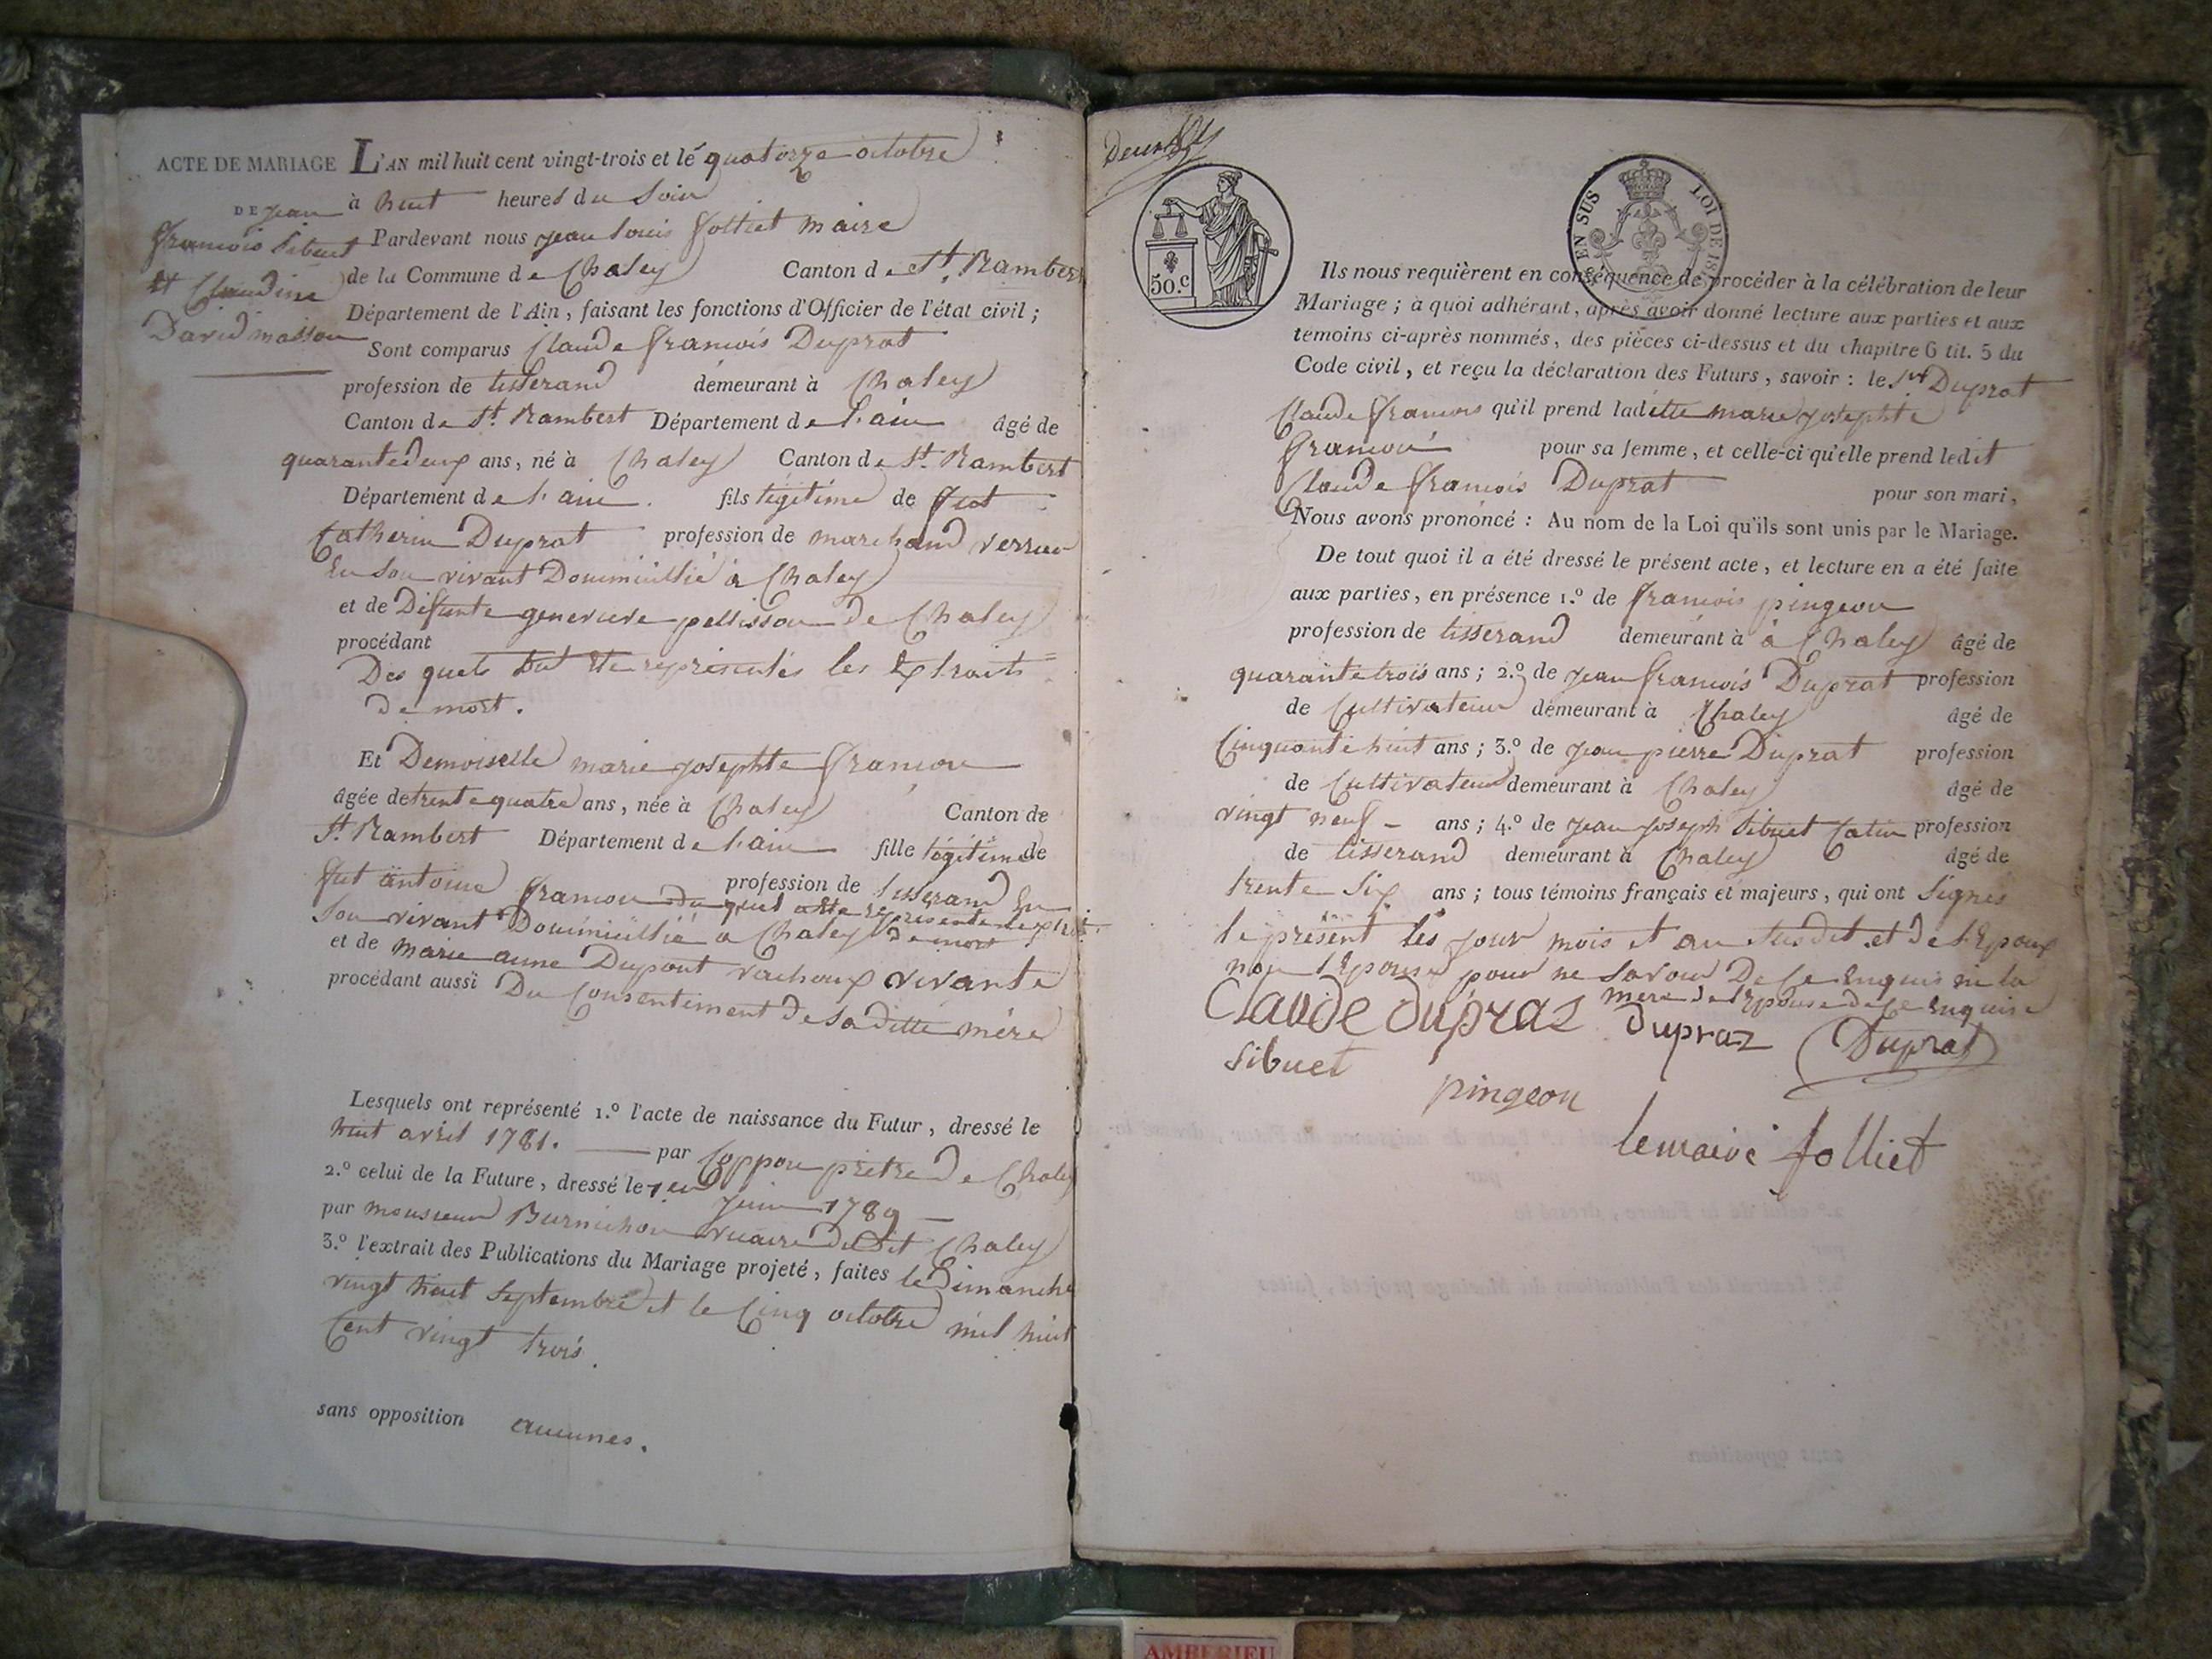 ACTE DE MARIAGE L'AN mil huit cent vingt-trois et le quatorze octobre
DE jean à huit heures du Soir
francois Sibuet Pardevant nous jean Louis folliet maire
et Claudine de la Commune de Chaley Canton de St. Rambert
David masson Département de l'Ain, faisant les fonctions d'Officier de l'état civil;
Sont comparus Claude francois Duprat
profession de tisserand demeurant à Chaley
Canton de St. Rambert Département de l'ain âgé de
quarantedeux ans, né à Chaley Canton de St. Rambert
Département de l'ain. fils légitime de feut
Catherin Duprat profession de marchand verrier
En Son vivant Doumicillié à Chaley
et de Defunte genevieve pellisson de Chaley
procédant
Des quels été représentés les Extraits
de mort.
Et Demoiselle marie josephte francon
âgée de trente quatre ans, née à Chaley Canton de
St. Rambert Département de l'ain fille légitime de
feut antoine francon profession de tisserand En
Son vivant Doumicillié a Chaley du quel représenté
de mort
et de marie anne Dupont vachoux vivante
procédant aussi Du Consentement de Sa ditte mère
Lesquels ont représenté 1.º l'acte de naissance du Futur, dressé le
huit avril 1781. par Coppon prêtre de Chaley
2.º celui de la Future, dressé le 1er juin 1789
par monsieur Burnichon vicaire dudit Chaley
3.º l'extrait des Publications du Mariage projeté, faites le Dimanche
vingt huit Septembre et le Cinq octobre mil huit
Cent vingt trois.
sans opposition aucunes.
50.c
EN SUS
LOI DE 181
Ils nous requièrent en conséquence de procéder à la célébration de leur
Mariage; à quoi adhérant, après avoir donné lecture aux parties et aux
témoins ci-après nommés, des pièces ci-dessus et du chapitre 6 tit. 5 du
Code civil, et reçu la déclaration des Futurs, savoir: le Sr Duprat
Claude francois qu'il prend laditte marie josephte
francon pour sa femme, et celle-ci qu'elle prend ledit
Claude francois Duprat pour son mari,
Nous avons prononcé: Au nom de la Loi qu'ils sont unis par le Mariage.
De tout quoi il a été dressé le présent acte, et lecture en a été faite
aux parties, en présence 1.º de francois pingeon
profession de tisserand demeurant à à Chaley âgé de
quarante trois ans; 2.º de jean francois Duprat profession
de Cultivateur demeurant à Chaley âgé de
Cinquante huit ans; 3.º de jean pierre Duprat profession
de Cultivateur demeurant à Chaley âgé de
vingt neuf ans; 4.º de jean joseph Sibuet Catin profession
de tisserand demeurant à Chaley âgé de
trente Six ans; tous témoins français et majeurs, qui ont Signés
le présent les jour mois et an Susdit et de l'Epoux
non l'Epouse pour ne Savoir De Ce Enquis ni la
mere de l'Epouse de Ce Enquise
Claude dupraz dupraz Duprat
Sibuet pingeon
lemaire folliet
AMBERIEU